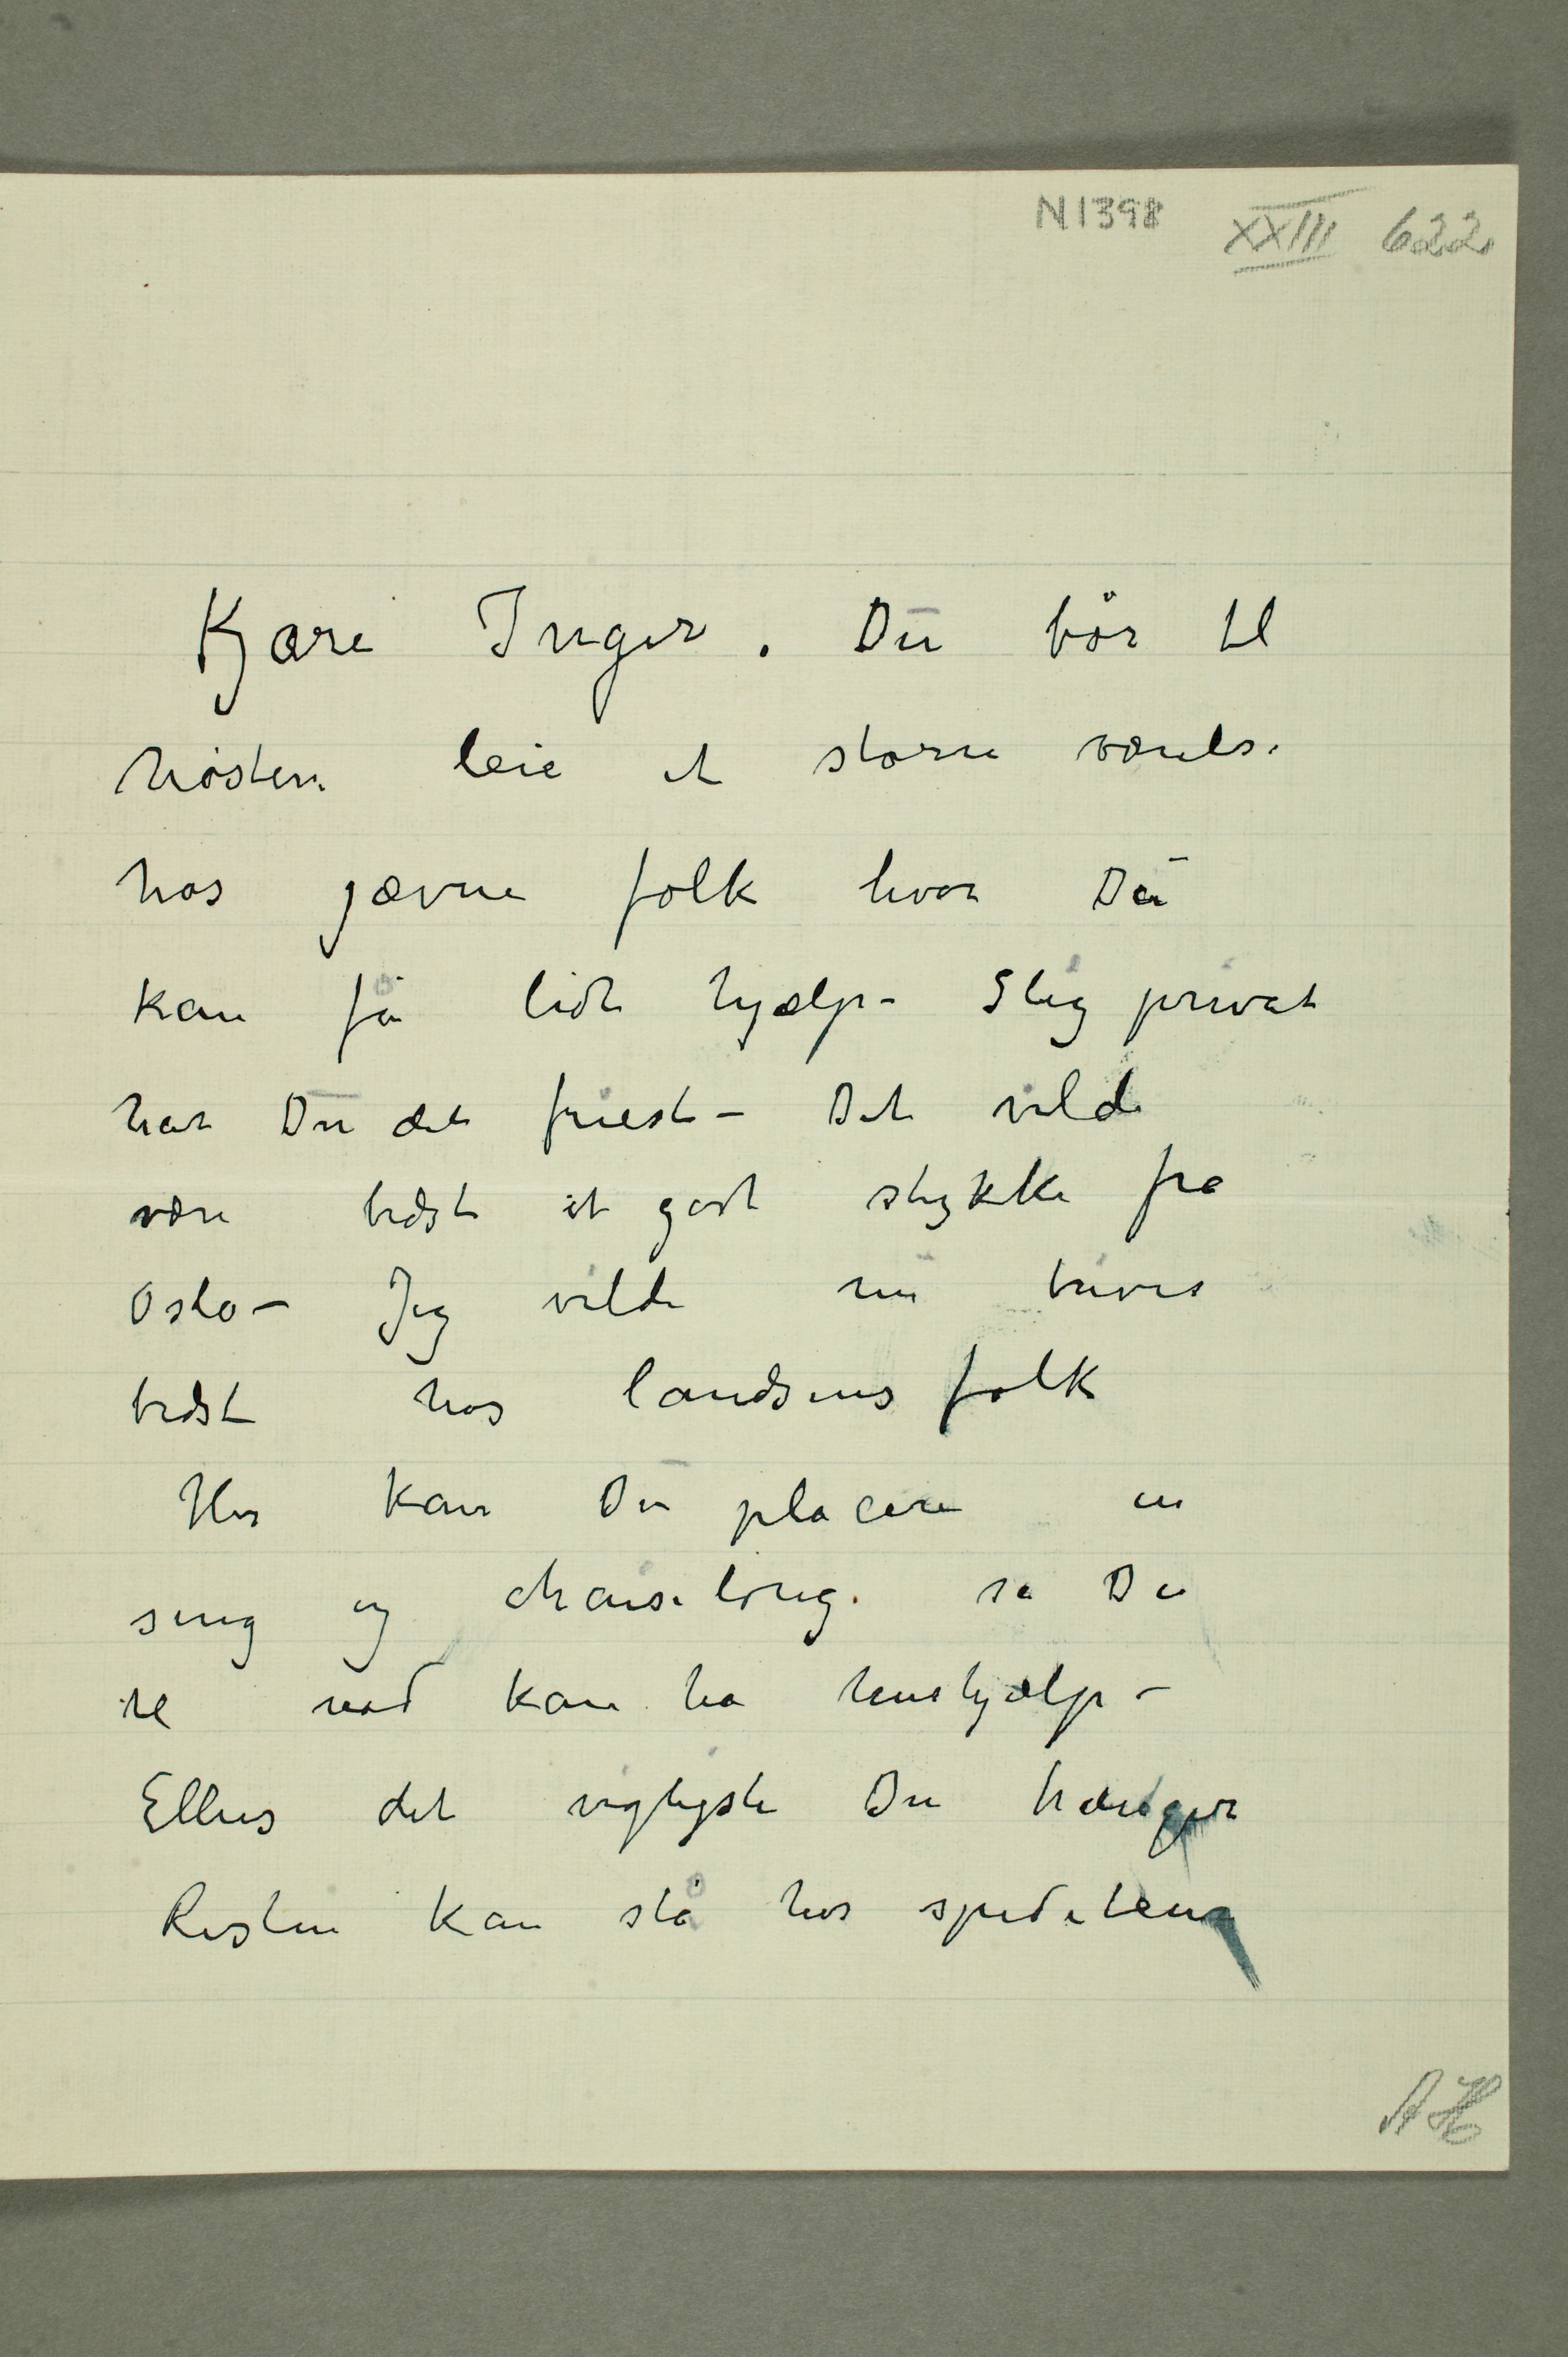 N 1398 XXIII 622
Kjære Inger. Du bør til
høsten leie et større værelse
hos jævne folk hvor Du
kan få lidt hjælp – Slig privat
har Du det friest – Det vilde
være bedst et godt stykke fra
Oslo – Jeg vilde nu trives
bedst hos landsens folk
Her kan Du placere en
seng og chaiselong. så Du
til nød kan ha hushjælp –
Ellers det vigtigste Du trænger
Resten kan stå hos spediteur
AH